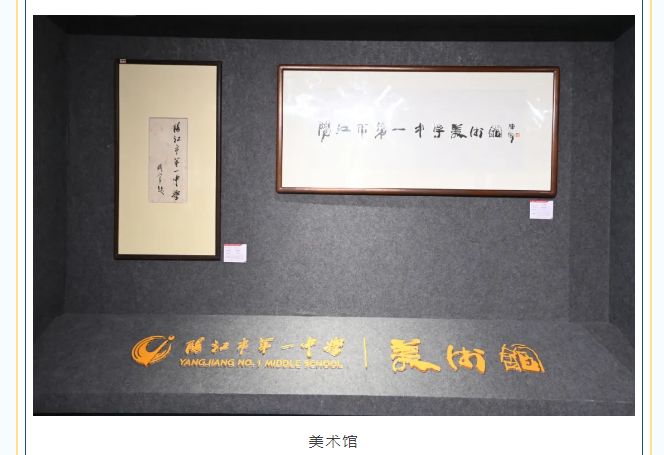 陽江市第一中學
陽江市第一中学美術館
陽江市第一中學
YANGJIANG NO.1 MIDDLE SCHOOL
美術館
美术馆